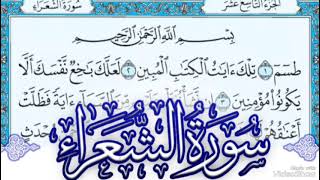 الجزء التاسع عشر
سُورَةُ الشُّعَرَاءِ
بِسْمِ اللَّهِ الرَّحْمَٰنِ الرَّحِيمِ
طسم ١ تِلْكَ ءَايَٰتُ الْكِتَٰبِ الْمُبِينِ ٢ لَعَلَّكَ بَٰخِعٌ نَّفْسَكَ أَلَّا
يَكُونُوا مُؤْمِنِينَ ٣ ءَايَةً فَظَلَّتْ
سُورَةُ الشُّعَرَاءِ